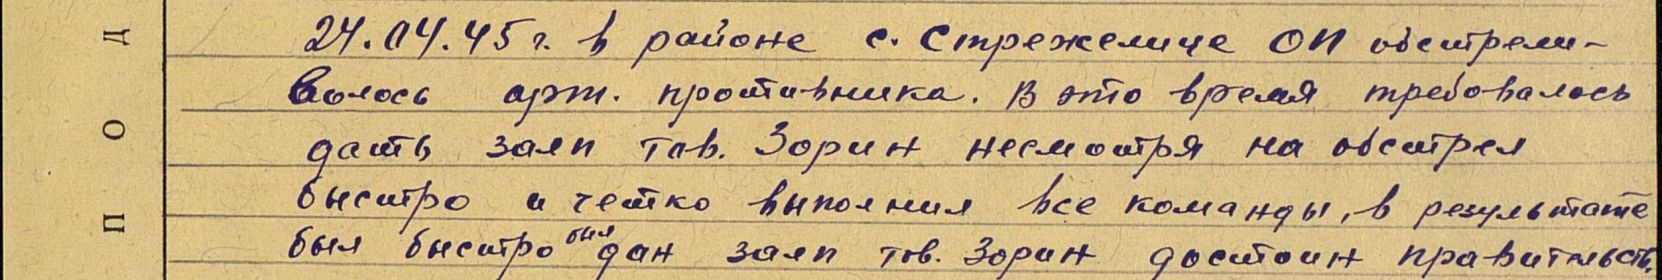 24.04.45 г. в районе с. Стрежелице ОП обстрели-
валось арт. противника. В это время требовалось
дать залп тов. Зорин несмотря на обстрел
быстро и четко выполнил все команды, в результате
был быстро был дан залп тов. Зорин достоин правительств.
П О Д